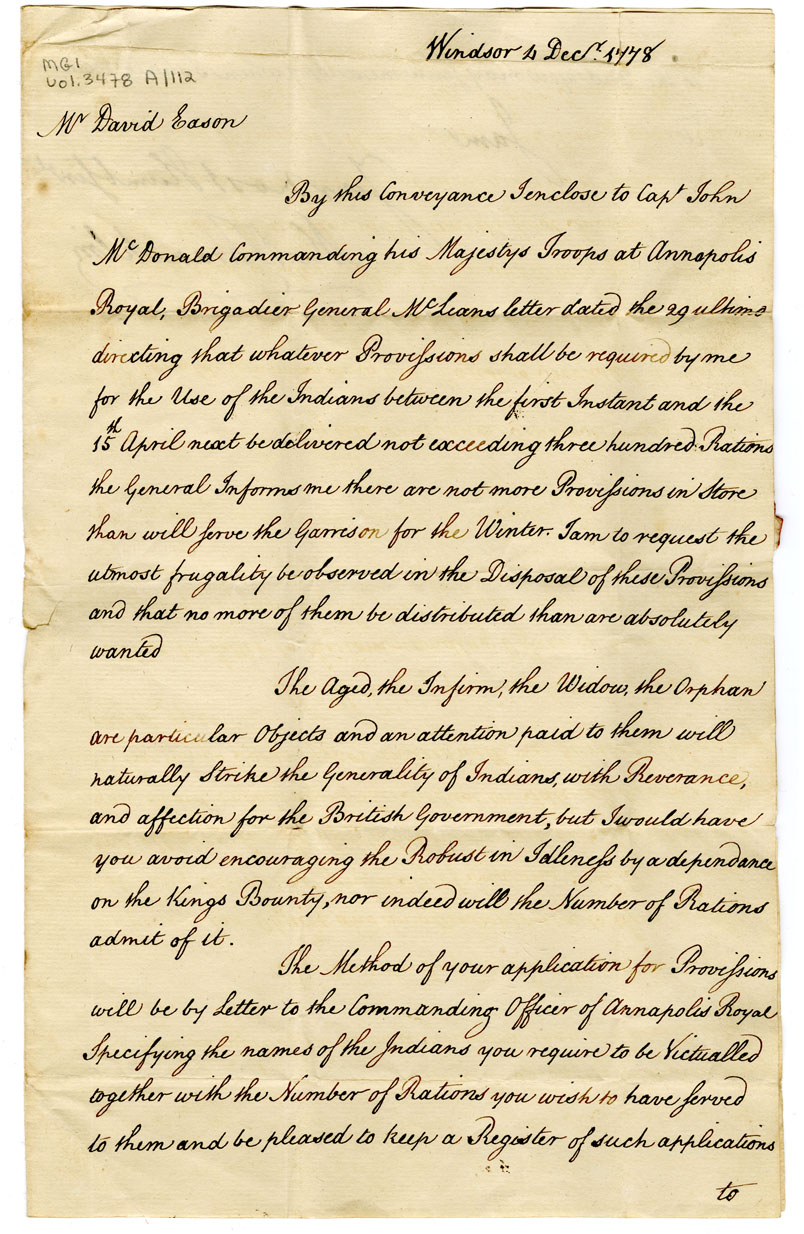 Windsor 4 Decr. 1778
MG1
Vol. 3478 A/112
Mr David Eason
By this Conveyance I enclose to Capt John
McDonald Commanding his Majestys Troops at Annapolis
Royal, Brigadier General McLeans letter dated the 29 ultimo
directing that whatever Provissions shall be required by me
for the Use of the Indians between the first Instant and the
15th April next be delivered not exceeding three hundred Rations
the General Informs me there are not more Provissions in Store
than will serve the Garrison for the Winter. I am to request the
utmost frugality be observed in the Disposal of these Provissions
and that no more of them be distributed than are absolutely
wanted
The Aged, the Infirm, the Widow, the Orphan
are particular Objects and an attention paid to them will
naturally Strike the Generality of Indians, with Reverance,
and affection for the British Government, but I would have
you avoid encouraging the Robust in Idleness by a dependance
on the Kings Bounty, nor indeed will the Number of Rations
admit of it.
The Method of your application for Provissions
will be by Letter to the Commanding Officer of Annapolis Royal
Specifying the names of the Indians you require to be Victualled
together with the Number of Rations you wish to have served
to them and be pleased to keep a Register of such applications
to